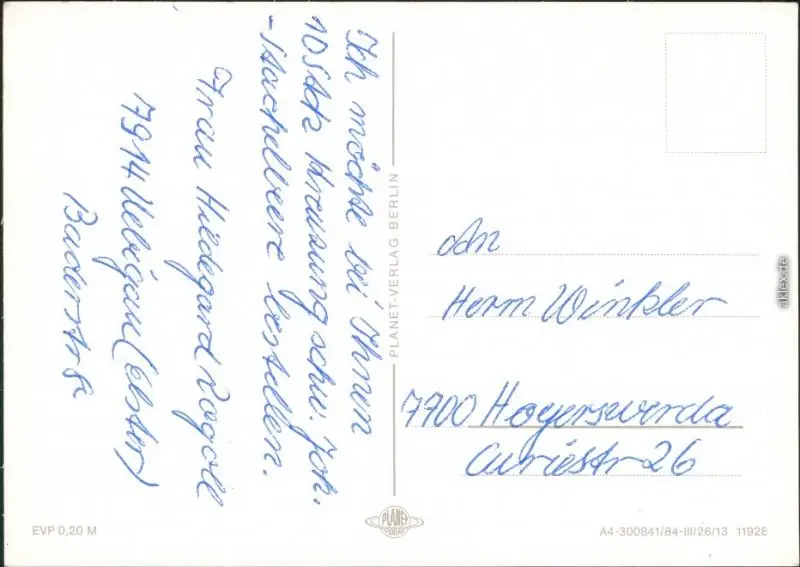 Ich möchte bei Ihnen
10 Stck Kreuzung schw. Joh.
-Stachelbeere bestellen.
Frau Hildegard Rogoll
7914 Uebigau (Elster)
Baderstr 8
PLANET-VERLAG BERLIN
An
Herrn Winkler
7700 Hoyerswerda
Curiestr 26
EVP 0,20 M
PLANET
VERLAG
A4-300841/84-III/26/13 11928
aklex.de